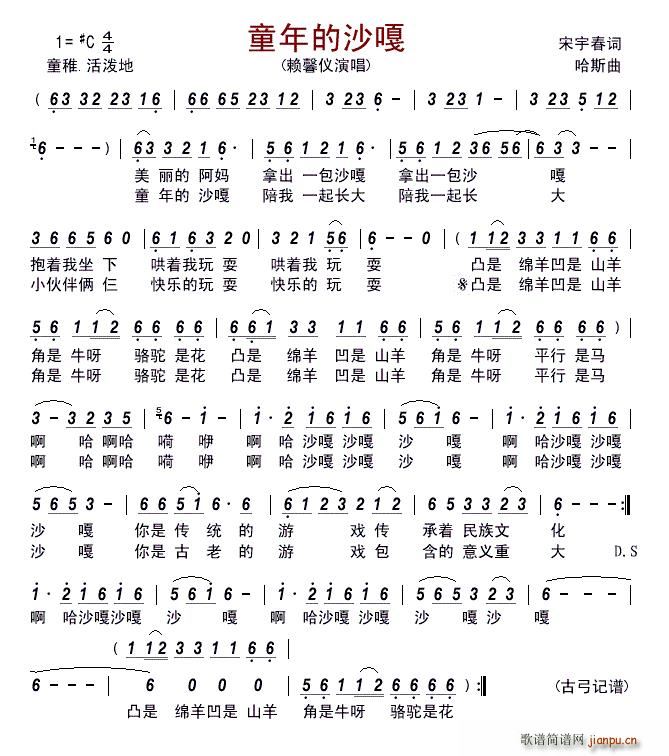 童年的沙嘎
1=♯C 4/4
宋宇春词
童稚.活泼地
(赖馨仪演唱)
哈斯曲
( 63 32 23 16 | 66 65 23 32 | 3 23 6 - | 3 23 1 - | 3 23 5 12
6 - - - ) | 63 3 2 1 6· | 56 12 1 6· | 56 12 356 56 | 6 33 - - |
美 丽的 阿妈 拿出 一包沙嘎 拿出一包沙 嘎
童 年的 沙嘎 陪我 一起长大 陪我一起长 大
3 6 6 5 6 0 | 6 1 6 3 2 0 | 3 2 1 5 6 | 6 - - 0 | ( 1 12 3 3 1 1 6 6 |
抱着我坐 下 哄着我玩 耍 哄着我 玩 耍 凸是 绵羊凹是 山羊
小伙伴俩 仨 快乐的玩 耍 快乐的 玩 耍 ※凸是 绵羊凹是 山羊
5 6 1 12 6 6 6 6 | 6 61 3 3 1 1 6 6 | 5 6 1 12 6 6 6 6 )
角是 牛呀 骆驼 是花 凸是 绵羊 凹是 山羊 角是 牛呀 平行 是马
角是 牛呀 骆驼 是花 凸是 绵羊 凹是 山羊 角是 牛呀 平行 是马
3 - 3 2 3 5 | 6 - 1 - | 1· 2 1 6 1 6 | 5 61 6 - | 1· 2 1 6 1 6 |
啊 哈 啊哈 嗬 咿 啊 哈 沙嘎 沙嘎 沙 嘎 啊 哈沙嘎 沙嘎
啊 哈 啊哈 嗬 咿 啊 哈 沙嘎 沙嘎 沙 嘎 啊 哈沙嘎 沙嘎
5 65 3 - | 6 1 2 1 6· | 6 12 3 2 1 2 | 6 5 3 3 2 3 | 6 - - - :‖
沙 嘎 你是 传 统 的 游 戏 传 承着 民族文 化
沙 嘎 你是 古 老 的 游 戏 包 含的 意义重 大 D.S
1· 2 1 6 1 6 | 5 61 6 - | 1· 2 1 6 1 6 | 5 65 3 23 |
啊 哈沙嘎沙嘎 沙 嘎 啊 哈沙嘎 沙嘎 沙 嘎 沙 嘎
( 1 12 3 3 1 1 6 6 |
6 - - - | 6 0 0 0 | 5 6 1 12 6 6 6 6 ) :‖
(古弓记谱)
凸是 绵羊凹是 山羊 角是牛呀 骆驼是花
歌谱简谱网
jianpu.cn